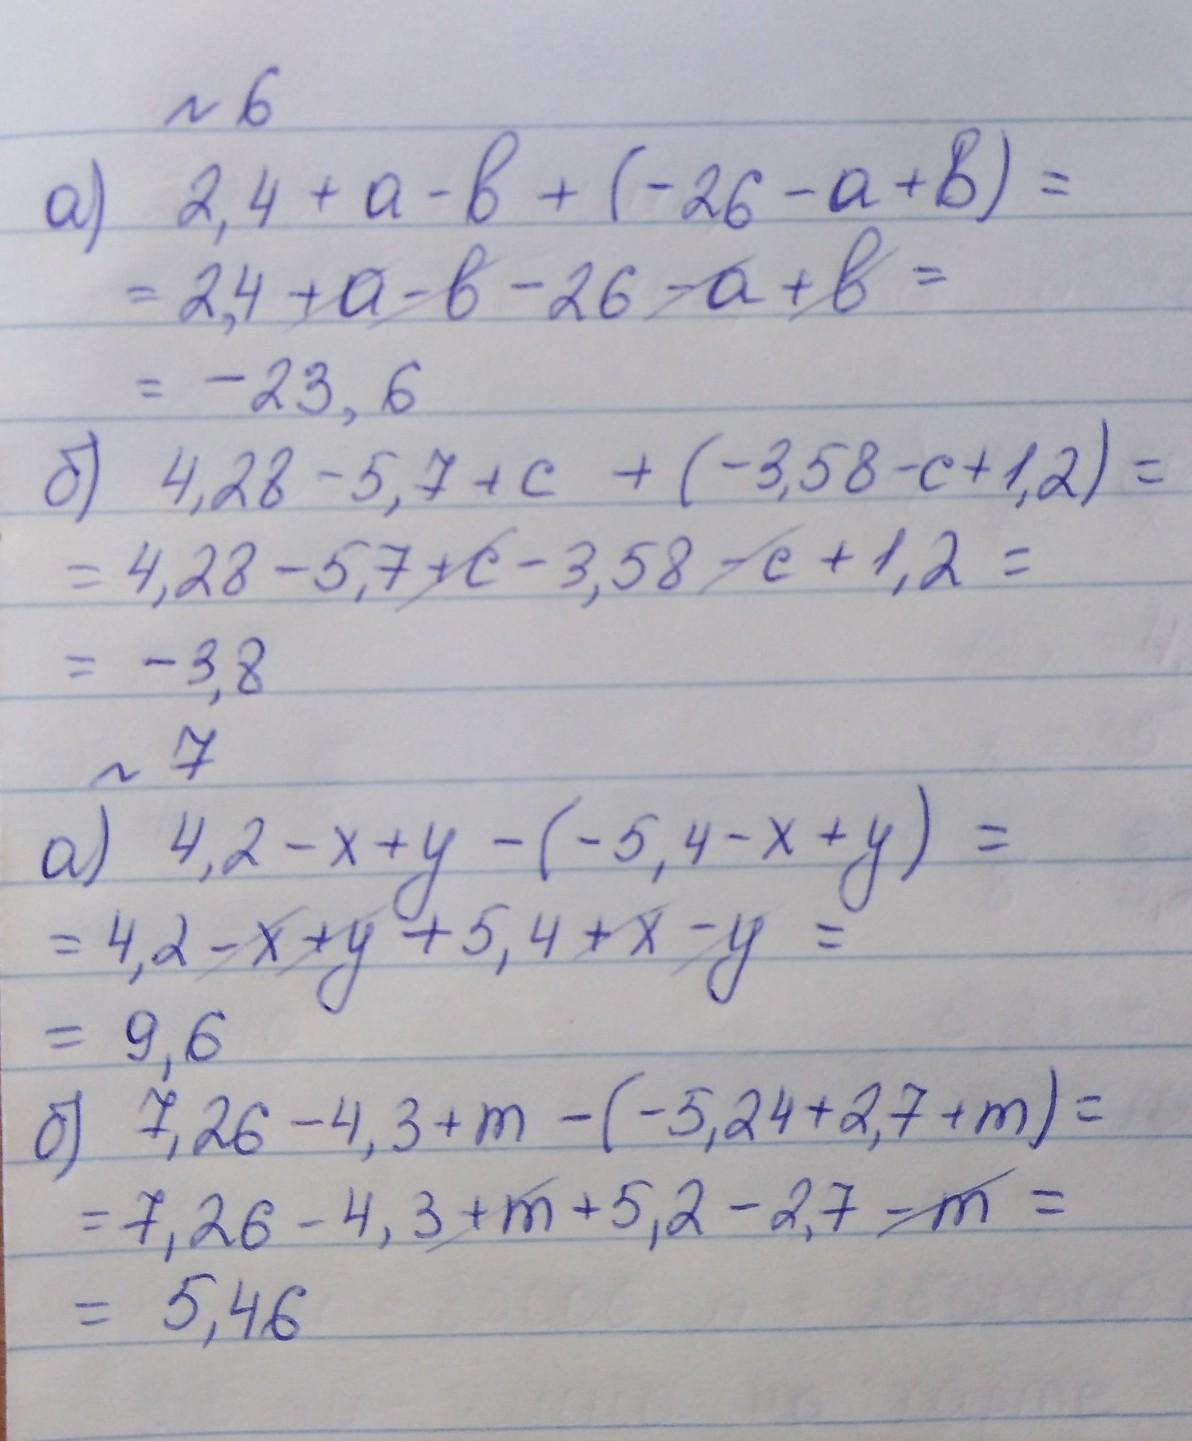 ~ 6
а) 2,4 + а - в + (-26 - а + в) =
= 2,4 + а - в - 26 - а + в =
= -23,6
б) 4,28 - 5,7 + с + (-3,58 - с + 1,2) =
= 4,28 - 5,7 + с - 3,58 - с + 1,2 =
= -3,8
~ 7
а) 4,2 - х + у - (-5,4 - х + у) =
= 4,2 - х + у + 5,4 + х - у =
= 9,6
б) 7,26 - 4,3 + m - (-5,24 + 2,7 + m) =
= 7,26 - 4,3 + m + 5,2 - 2,7 - m =
= 5,46